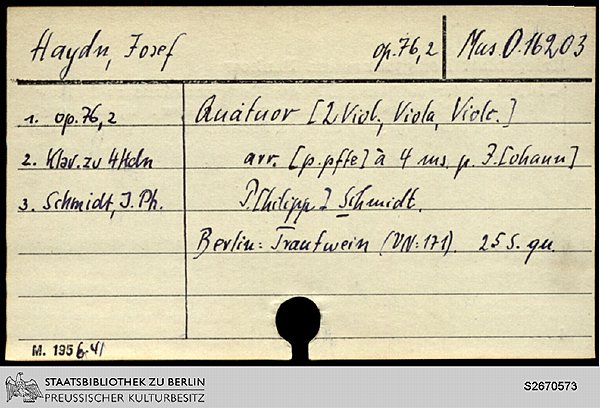 Haydn, Josef op. 76, 2 Mus. O. 16203
1. op. 76, 2 Quatuor [2 Viol., Viola, Violc.]
2. Klav. zu 4 Hdn arr. [p. pffe] à 4 ms. p. J.[ohann]
3. Schmidt, J. Ph. P.[hilipp] Schmidt.
Berlin: Trautwein (VN: 171). 25 S. qu.
M. 1956.41
STAATSBIBLIOTHEK ZU BERLIN
PREUSSISCHER KULTURBESITZ
S2670573